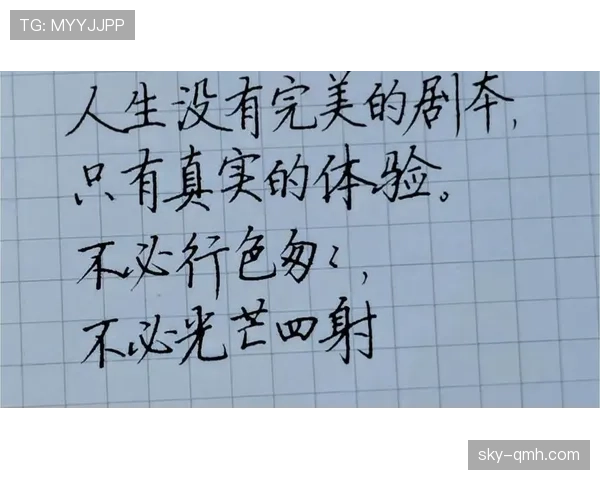 TG: MYYJJPP
人生没有完美的剧本,
只有真实的体验。
不必行色匆〻,
不必光芒四射
sky-qmh.com